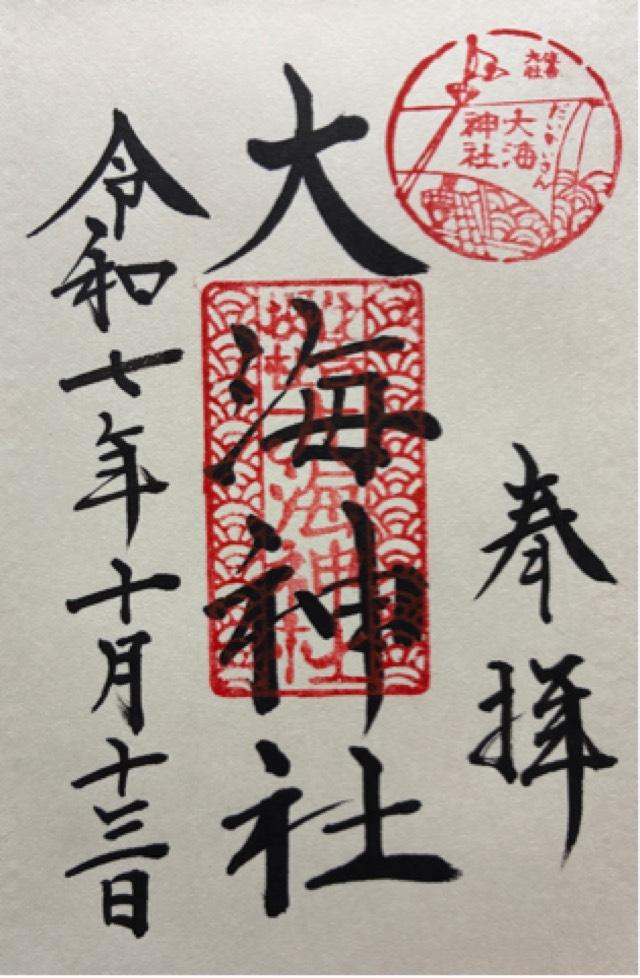 奉拝
大海神社
令和七年十月十三日
住吉
大社
だいかいさん
大海
神社